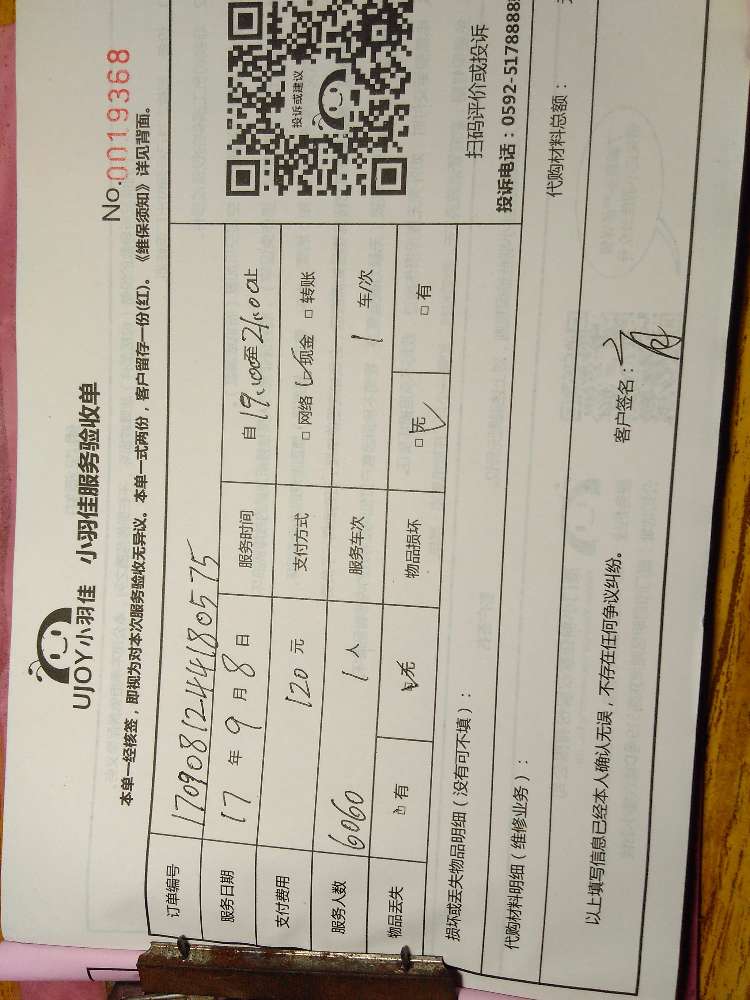 UJOY小羽佳 小羽佳服务验收单
No.0019368
本单一经核签，即视为对本次服务验收无异议。本单一式两份，客户留存一份(红)。《维保须知》详见背面。
订单编号 17090812444180575
服务日期 17 年 9 月 8 日 服务时间 自 19:00 至 21:00 止
支付费用 120 元 支付方式 □ 网络 □ 现金 □ 转账
服务人数 6060 1 人 服务车次 1 车/次
物品丢失 □ 有 □ 无 物品损坏 □ 无 □ 有
投诉或建议
扫码评价或投诉
投诉电话：0592-5178888
损坏或丢失物品明细（没有可不填）：
代购材料明细（维修业务）： 代购材料总额：
以上填写信息已经本人确认无误，不存在任何争议纠纷。 客户签名：